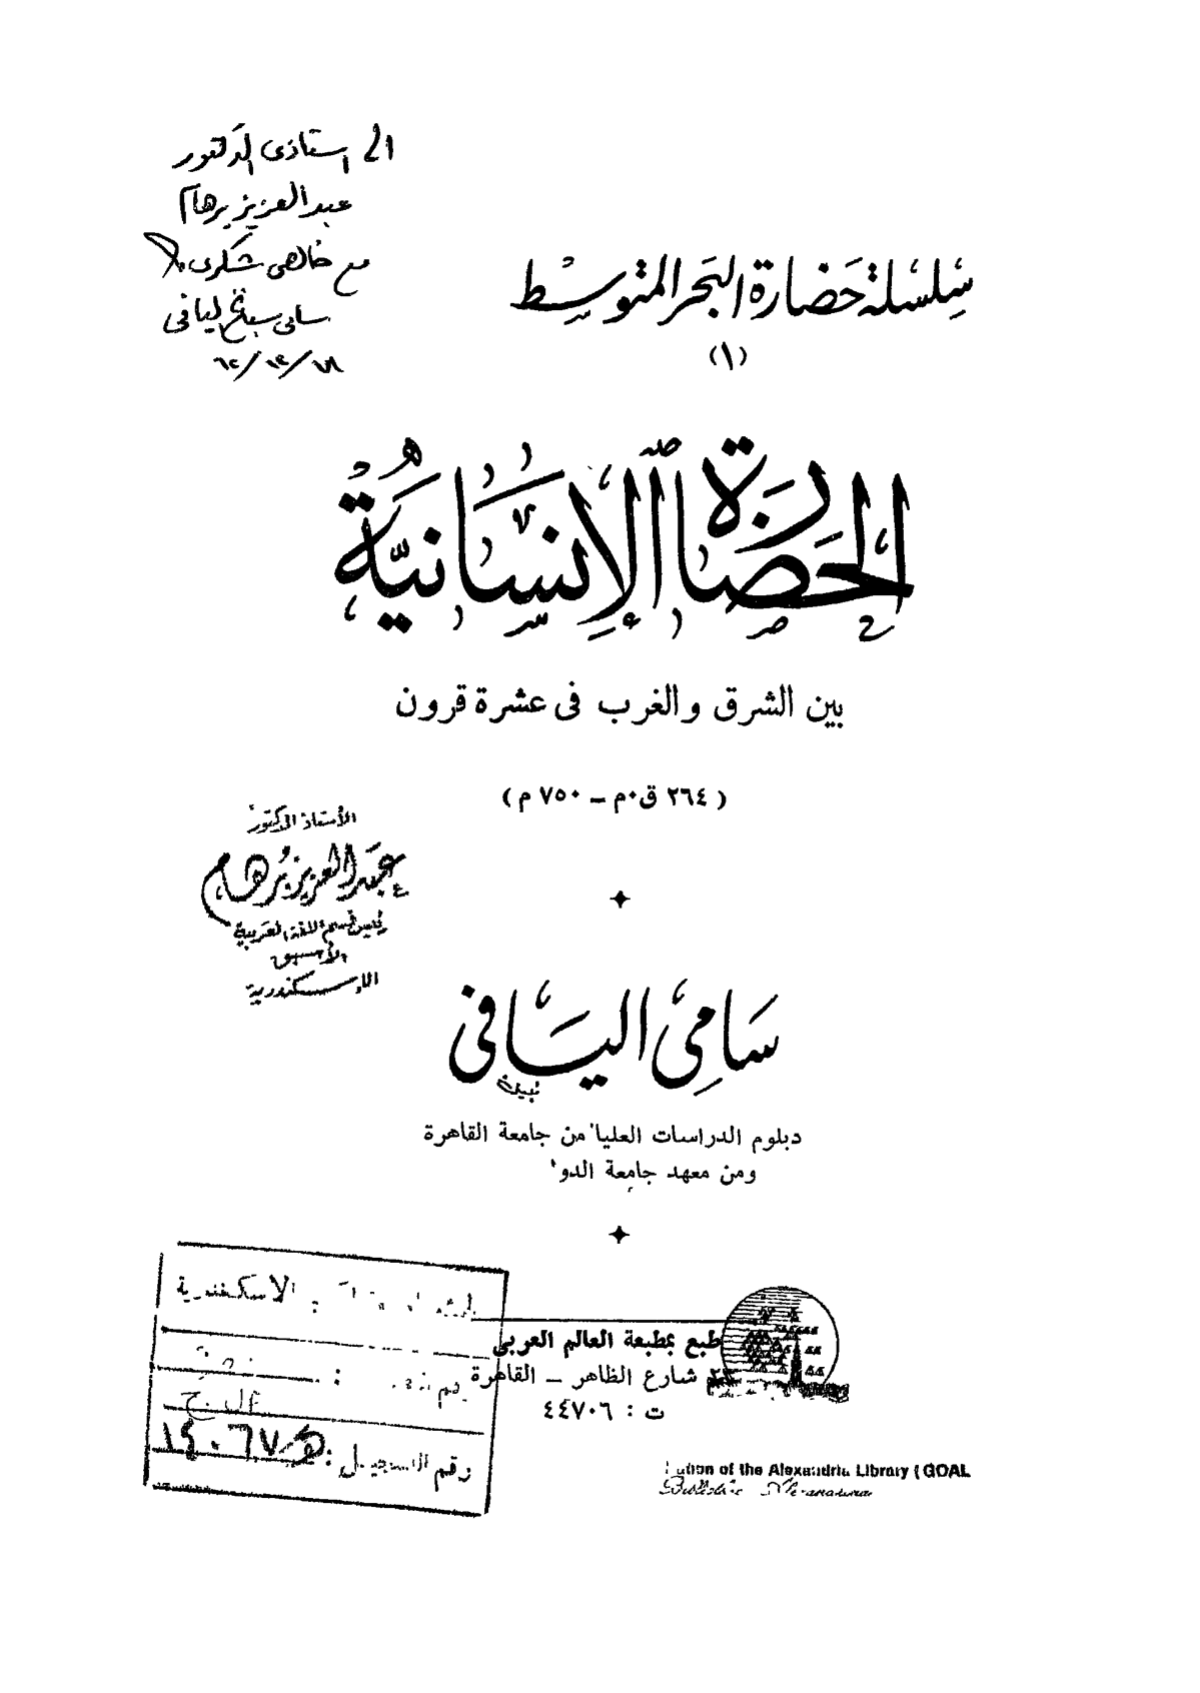 الى استاذى الدكتور
عبد العزيز برهام
مع خالص شكرى
سامى اليافى
سلسلة حضارة البحر المتوسط
(١)
الحضارة الإنسانية
بين الشرق والغرب فى عشرة قرون
( ٢٦٤ ق٠م ــ ٧٥٠ م )
الأستاذ الدكتور
عبد العزيز برهام
رئيس قسم اللغة العربية
الأسبق
الاسكندرية
سامى اليافى
دبلوم الدراسات العليا من جامعة القاهرة
ومن معهد جامعة الدو
طبع بمطبعة العالم العربى
٢٣ شارع الظاهر ــ القاهرة
ت : ٤٤٧٠٦
الاسكندرية
رقم التسجيل : ١٤٠٦٧
of the Alexandria Library ( GOAL